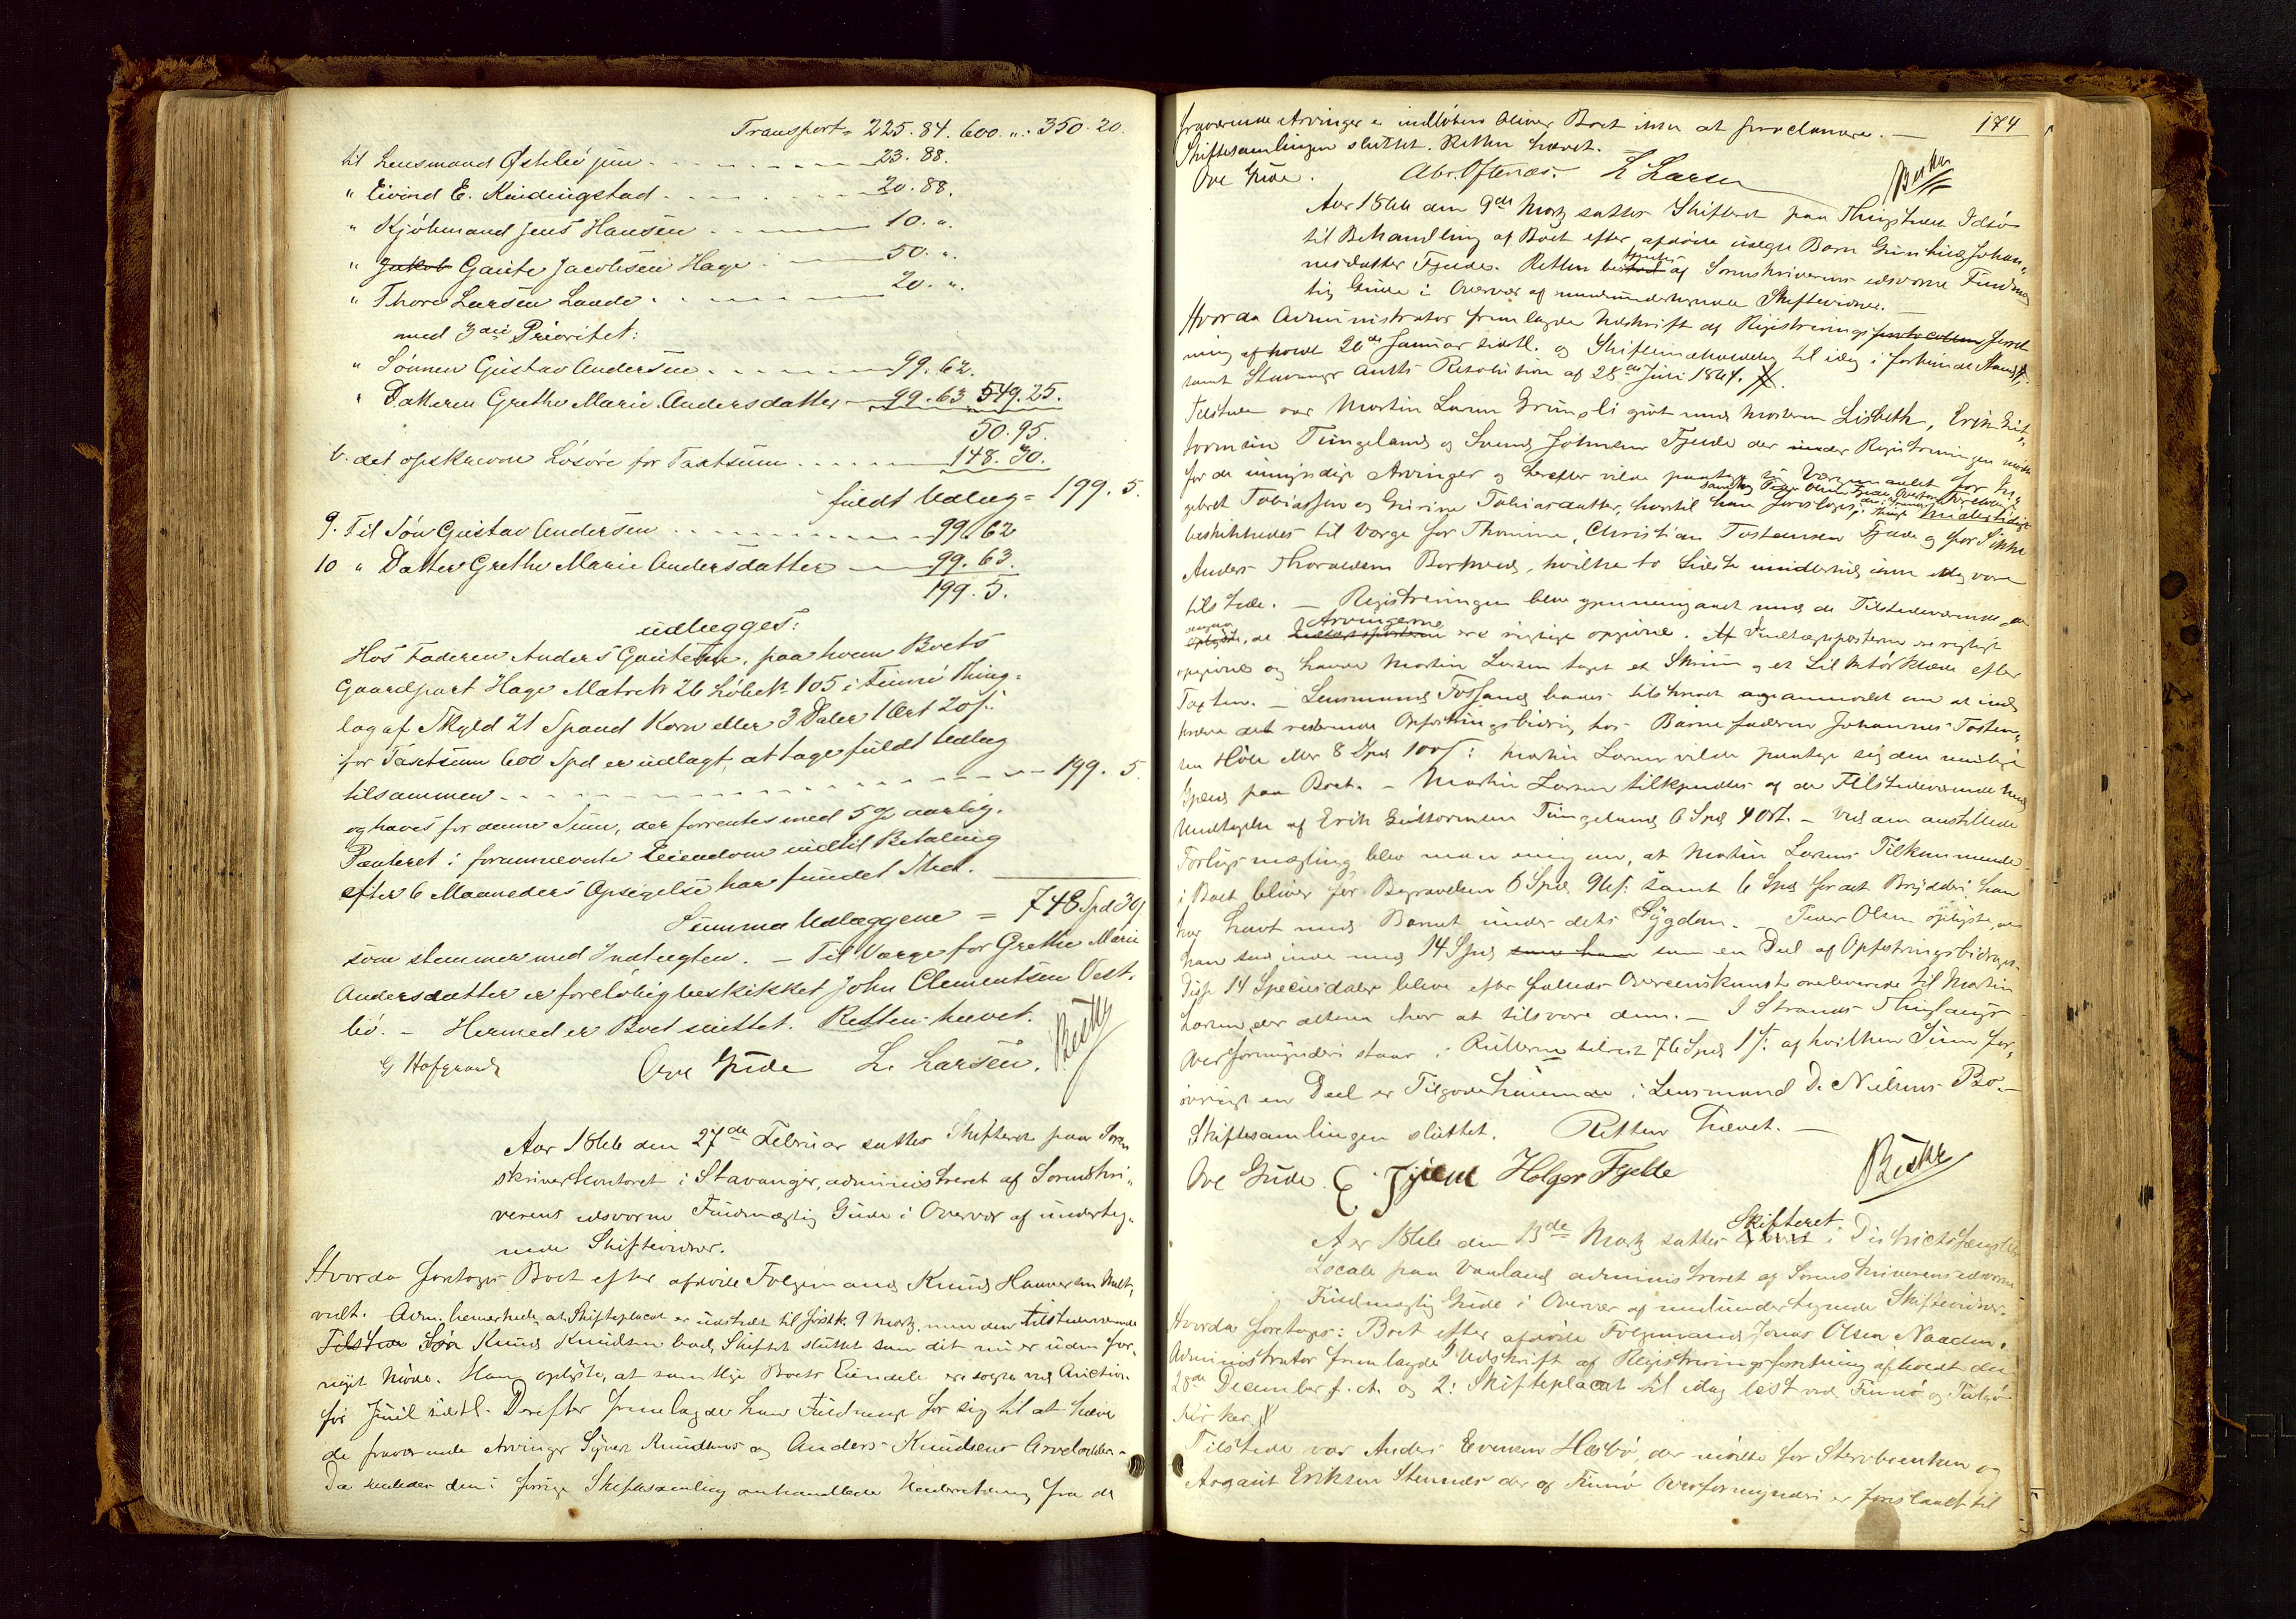 Transport = 225. 84. 600. „. 350. 20.
til Lensmand Østebø jun 23. 88.
„ Eivind E. Kindingstad 20. 88.
„ Kjøbmand Jens Hansen 10. „.
„ Jakob Gaute Jacobsen Hage 50. „.
„ Thore Larsen Lande 20. „.
med 3die Prioritet:
„ Sønnen Gustav Andersen 99. 62.
„ Datteren Grethe Marie Andersdatter 99. 63 549. 25.
50. 95.
b. det opskrevne Løsøre for Taxtsum 148. 30.
fuldt Udlæg = 199. 5.
9. Til Søn Gustav Andersen 99. 62
10 „ Datter Grethe Marie Andersdatter 99. 63.
199. 5.
udlægges:
Hos Faderen Anders Gautesen, paa hvem Boets
Gaardpart Hage Matr: No 26 Løbe No 105 i Finnø Thing-
lag af Skyld 21 Spand Korn eller 3 Daler 1 Ort 20 s.
for Taxtsum 600 Spd er udlagt, at tage fuldt Udlæg
tilsammen 199. 5.
og haves for denne Sum, der forrentes med 5 % aarlig,
Panteret i fornævnte Eiendom indtil Betaling
efter 6 Maaneders Opsigelse har fundet Sted.
Summa Udlæggene = 748 Spd 30 s
som stemmer med Indtægten. – Til Værge for Grethe Marie
Andersdatter er foreløbig beskikket John Clementsen Vest-
bø. – Hermed er Boet sluttet. Retten hævet.
Ove Gude L. Larsen.
Aar 1866 den 27de Februar sattes Skifteret paa Soren
skriverkontoret i Stavanger, administreret af Sorenskri-
verens edsvorne Fuldmægtig Gude i Overvær af underteg-
nede Skiftevidner.
Hvorda foretoges Boet efter afdøde Folgemand Knud
vedt. Adm. bemærkede, at Skifteplacat er udstedt til 9 Martz, men den tilstedeværende
Tilstede Søn Knud Knudsen bad Skiftet sluttet som det nu er uden for-
nyet Møde. Han oplyste, at samtlige Boets Eiendele ere solgte ved Auction
før Juul sidstl. Derefter fremlagde han Fuldmagt for sig til at hæve
de fraværende Arvinger Knudsens og Anders Knudsens Arvelodder. –
Da den i forrige Skiftesamling omhandlede Underretning fra de
174
fraværende Arvinger er indløben bliver Boet ikke at proclamere. –
Skiftesamlingen sluttet. Retten hævet.
Ove Gude. Abr. Oftenæs. L Larsen
Aar 1866 den 9de Martz sattes Skifteret paa Thingstedet Idsø
til Behandling af Boet efter afdøde uægte Barn Gunhild Johan-
nesdatter Fjelde. Retten betjentes af Sorenskriverens edsvorne Fuldmæg
tig Gude i Overvær af medundertegnede Skiftevidner. –
Hvorda Administrator fremlagde Udskrift af Registrerings protocollen forret
ning afholdt 20de Januar sidstl. og Skifteindkaldelse til idag i forkyndt Stand
samt Stavanger Amts Resolution af 28de Juni 1864.
Tilstede var Martin Larsen givt med Moderen Lisbeth, Erik Gut-
tormsen Tungeland og Svend Johnsen Fjelde der under Registreringen mødte
for de umyndige Arvinger og herefter vilde paatage sig Værgemaalet for In-
geborg Tobiasen og Gurine Tobiasdatter, hvortil han foresloges;
beskikkedes til Værge for Thomine, Christian Tostensen Fjelde og for
Anders Thoraldsen Borkeland, hvilke to Sidste imidlertid ikke idag vare
tilstede. – Registreringen blev gjennemgaaet med de Tilstedeværende, der
oplyste, at Indtægtsposterne Arvingerne ere rigtige opgivne. Indtægtsposterne ere rigtigt
opgivne og havde Martin Larsen taget et Skrin og et Sil efter
Taxten. – Lensmand Fossand bades tilskrevet og anmodet om at ind-
kræve det resterende Opfostringsbidrag hos Barnefaderen Johannes Tosten-
sen Hole eller 8 Spd 100 s: Martin Larsen vilde paatage sig den mulige
Spens paa Boet. – Martin Larsen tilkjendtes af de Tilstedeværende med
Undtagelse af Erik Guttormsen Tungeland 6 Spd 4 Ort. – Ved den anstillede
Forligsmægling blev man enig om, at Martin Larsens Tilkommende
i Boet bliver for Begravelsen 6 Spd 96 s: samt 6 Spd for det Bryderi han
har havt med Barnet under dets Sygdom. – Peder Olsen oplyste, at
han sad inde med 14 Spd som han som en Deel af Opfostringsbidraget.
Disse 14 Speciedaler bleve efter fælleds Overeenskomst overleverede til Martin
Larsen, der altsaa har at tilsvare dem. – I Strands Thinglaugs
Overformynderi staar i Rullerne tilrest 76 Spd 1 s: af hvilken Sum for-
øvrigt en Deel er Tilgodehavende i Lensmand D. Nielsens Bo. –
Skiftesamlingen sluttet. Retten hævet. –
Ove Gude. Holger Fjelde
Aar 1866 den 13de Martz sattes Skifteret i Districtsfængslets
Locale paa Vanland administreret af Sorenskriverens edsvorne
Fuldmægtig Gude i Overvær af medundertegnede Skiftevidner.
Hvorda foretoges: Boet efter afdøde Folgemand Jonas Olsen Naaden.
Administrator fremlagde 1 Udskrift af Registreringsforretning afholdt den
28de December f. A. og 2: Skifteplacat til idag læst ved Finnø og
Kirker.
Tilstede var Anders Evensen Hesbø, der mødte for Stervboenken og
Asgaut Eriksen Stennes der af Finnø Overformynderi er foreslaaet til